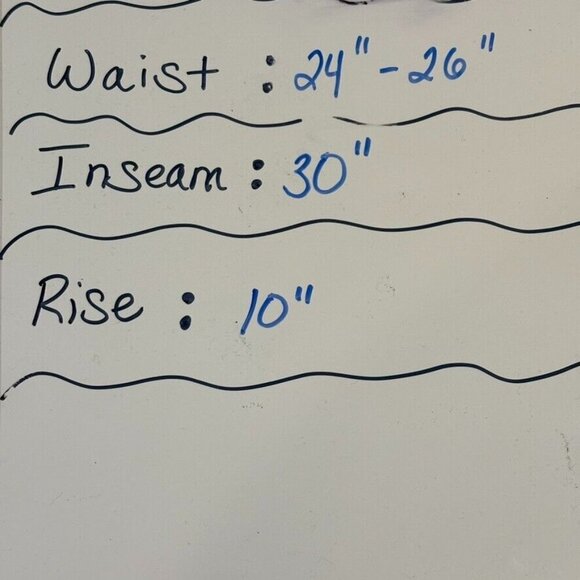 Waist : 24" - 26"
Inseam : 30"
Rise : 10"